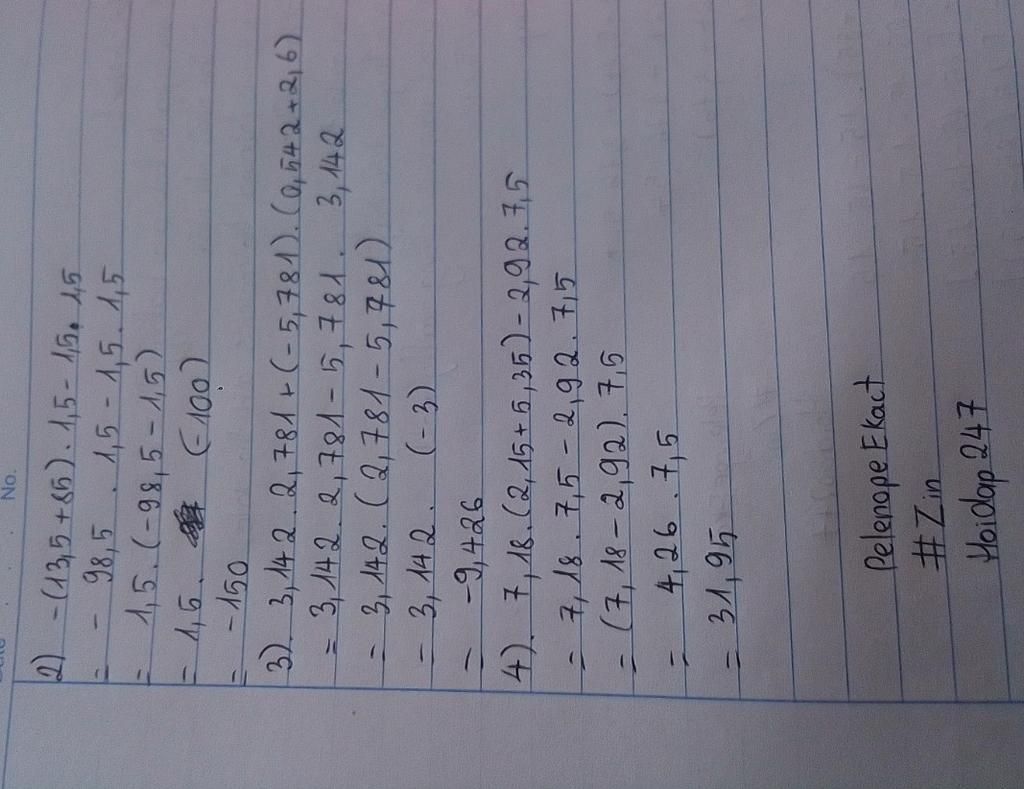 No.
2) -(13,5+85).1,5-1,5.1,5
= -98,5.1,5-1,5.1,5
= 1,5.(-98,5-1,5)
= 1,5. (-100)
= -150
3). 3,142.2,781+(-5,781).(0,542+2,6)
= 3,142.2,781-5,781.3,142
= 3,142.(2,781-5,781)
- 3,142.(-3)
= -9,426
4). 7,18.(2,15+5,35)-2,92.7,5
= 7,18.7,5-2,92.7,5
= (7,18-2,92).7,5
= 4,26.7,5
= 31,95
PelenopeEkact
#Zin
Hoidap247